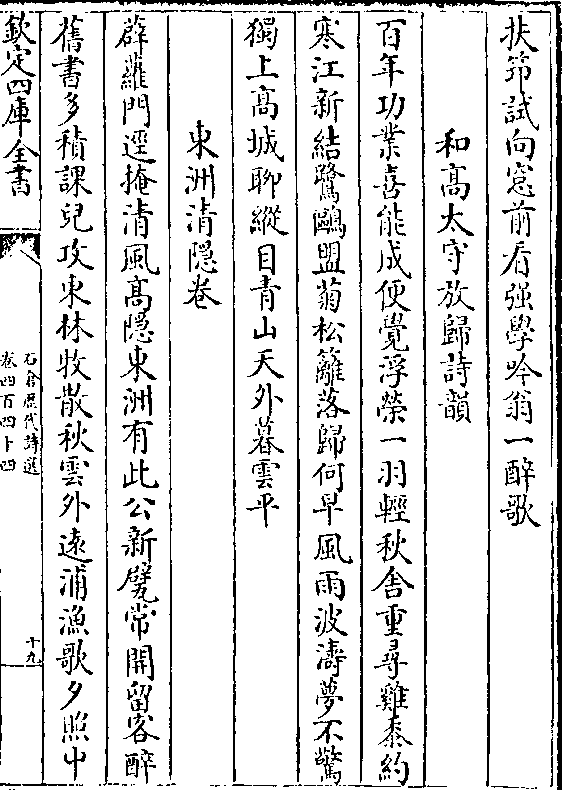 扶笻試向窓前看强學吟翁一醉歌
和髙太守放歸詩韻
百年功業喜能成便覺浮榮一羽輕秋舍重尋雞黍約
寒江新結鷺鷗盟菊松籬落歸何早風雨波濤夢不驚
獨上髙城聊縱目青山天外暮雲平
東洲清隠卷
薜蘿門逕掩清風髙隠東洲有此公新甕常開留客醉
舊書多積課兒攻東林牧散秋雲外遠浦漁歌夕照中
欽定四庫全書
石倉歴代詩選
卷四百四十四
十九